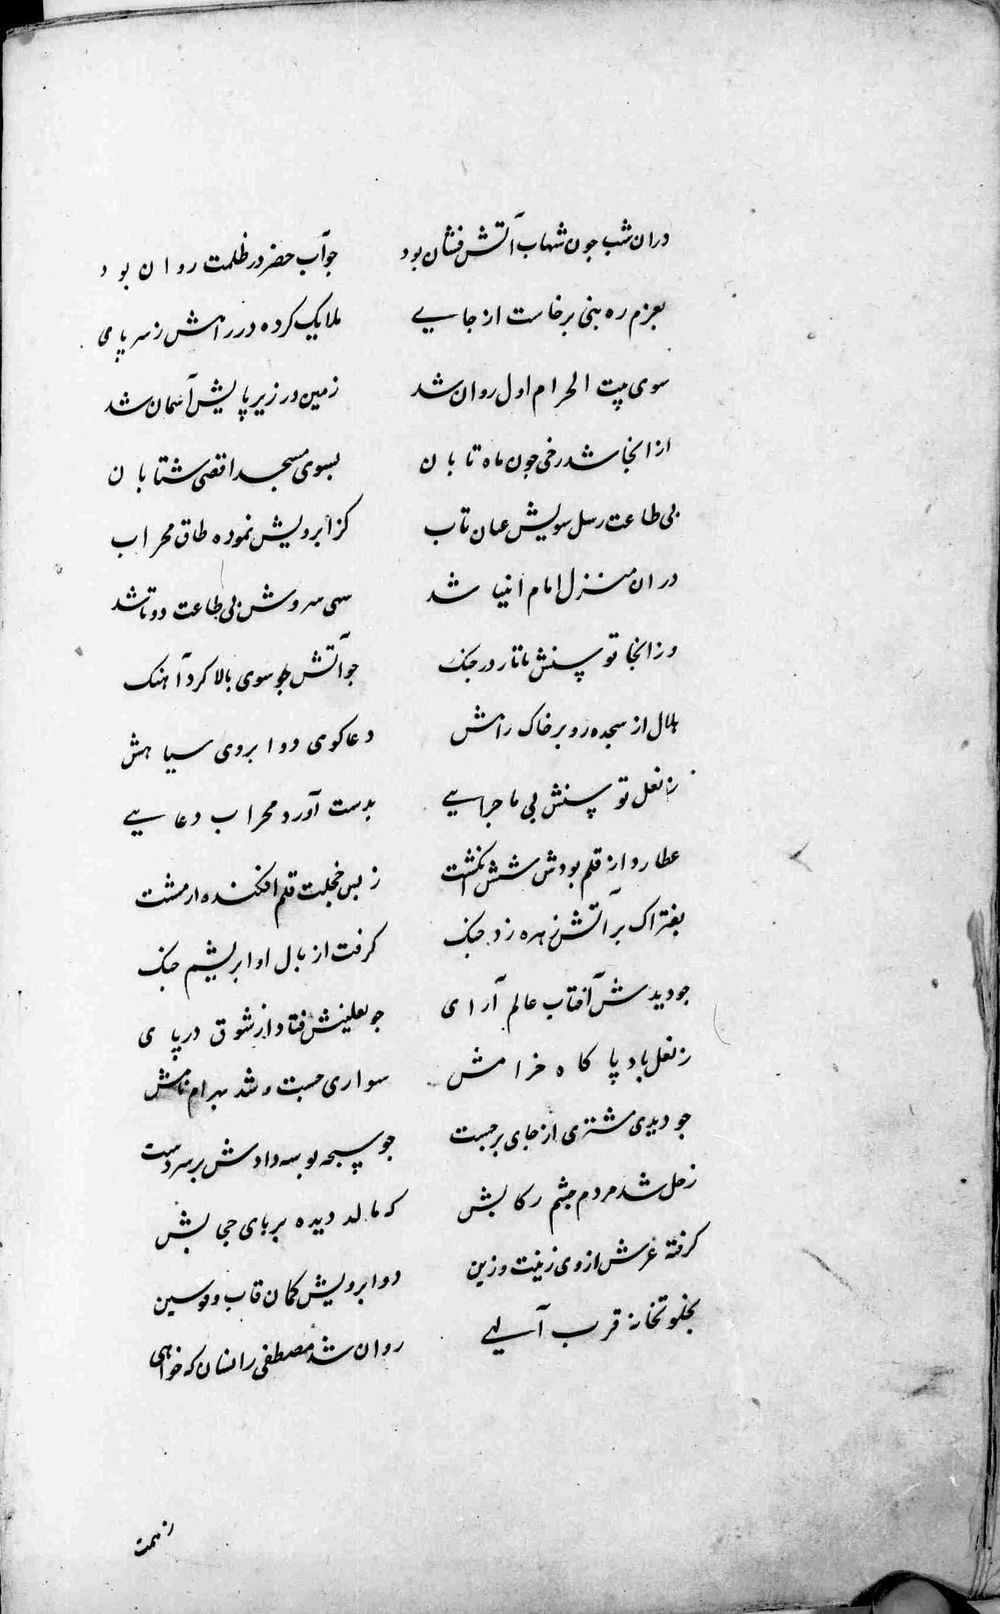 دران شب جون شهاب آتش فشان بود جوآب خضر در ظلمت روان بود
بعزم ره بنی برخاست از جایے ملایک کرده در راهش ز سر پای
سوی بیت الحرام اول روان شد زمین در زیر پایش آسمان شد
از انجا شد رخی جون ماه تابان بسوی مسجد اقصی شتابان
بی طاعت رسل سویش عنان تاب کز ابرویش نموده طاق محراب
دران منزل امام انبیا شد سهی سروش بی طاعت دوتا شد
وز انجا توسنش تا تار در جنک جو آتش سوی بالا کرد آهنک
هلال از سجده رو بر خاک راهش دعاکوی دو ابروی سیاهش
ز نعل توسنش بی ماجرایے بدست آورد محراب دعایے
عطارد از قلم بودش شش انکشت ز بس خجلت قلم افکنده از مشت
بفتراک بر آتش زهره زد جنک کرفت از بال او ابریشم جنک
جو دیدش آفتاب عالم آرای جو نعلینش فتاد از شوق در پای
ز نعل باد پا کاه خرامش سواری جست و شد بهرام نامش
جو دیدی مشتری از جای برجست جو سبحه بوسه دادش بر سر دست
زحل شد مردم جشم رکابش که مالد دیده بر پای جنابش
کرفته عرش از وی زینت و زین دو ابرویش کمان قاب و قوسین
بخلوتخانه قرب آلهے روان شد مصطفی را انسان که خواهی
ز همت